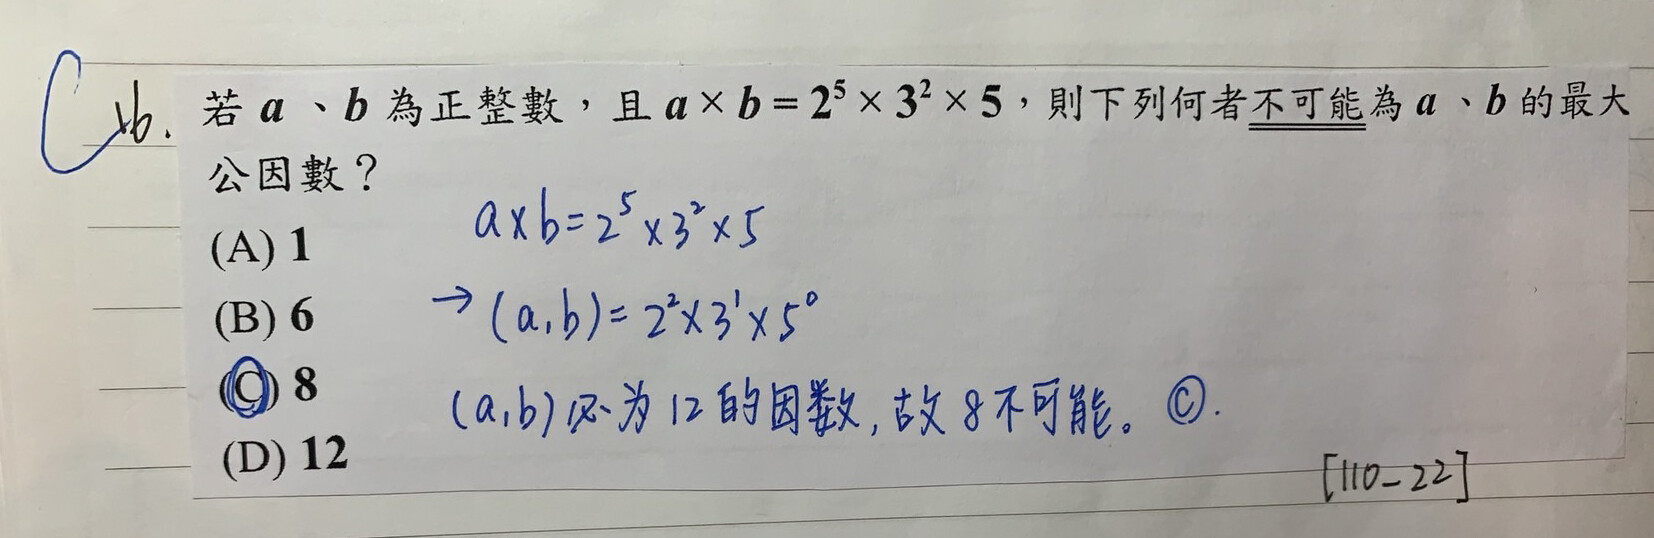 C 16. 若 a 、b 為正整數，且 a × b = 2⁵ × 3² × 5，則下列何者不可能為 a 、b 的最大
公因數？
(A) 1
a×b=2⁵×3²×5
(B) 6
→ (a,b)= 2²×3¹×5⁰
(C) 8
(a,b)必为12的因数,故8不可能。Ⓒ.
(D) 12
[110-22]